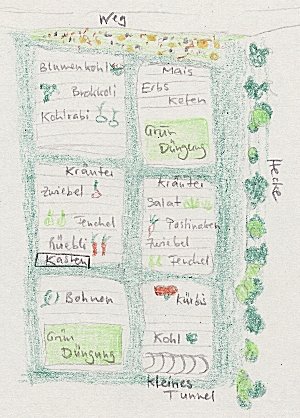 Weg
Blumenkohl
Brokkoli
Kohlrabi
Mais
Erbs
Grün
Düngung
Kräuter
Zwiebel
Fenchel
Rüebli
Kasten
Kräuter
Salat
Pastinaken
Zwiebel
Fenchel
Bohnen
Grün
Düngung
Kürbis
Kohl
kleines
Tunnel
Hecke